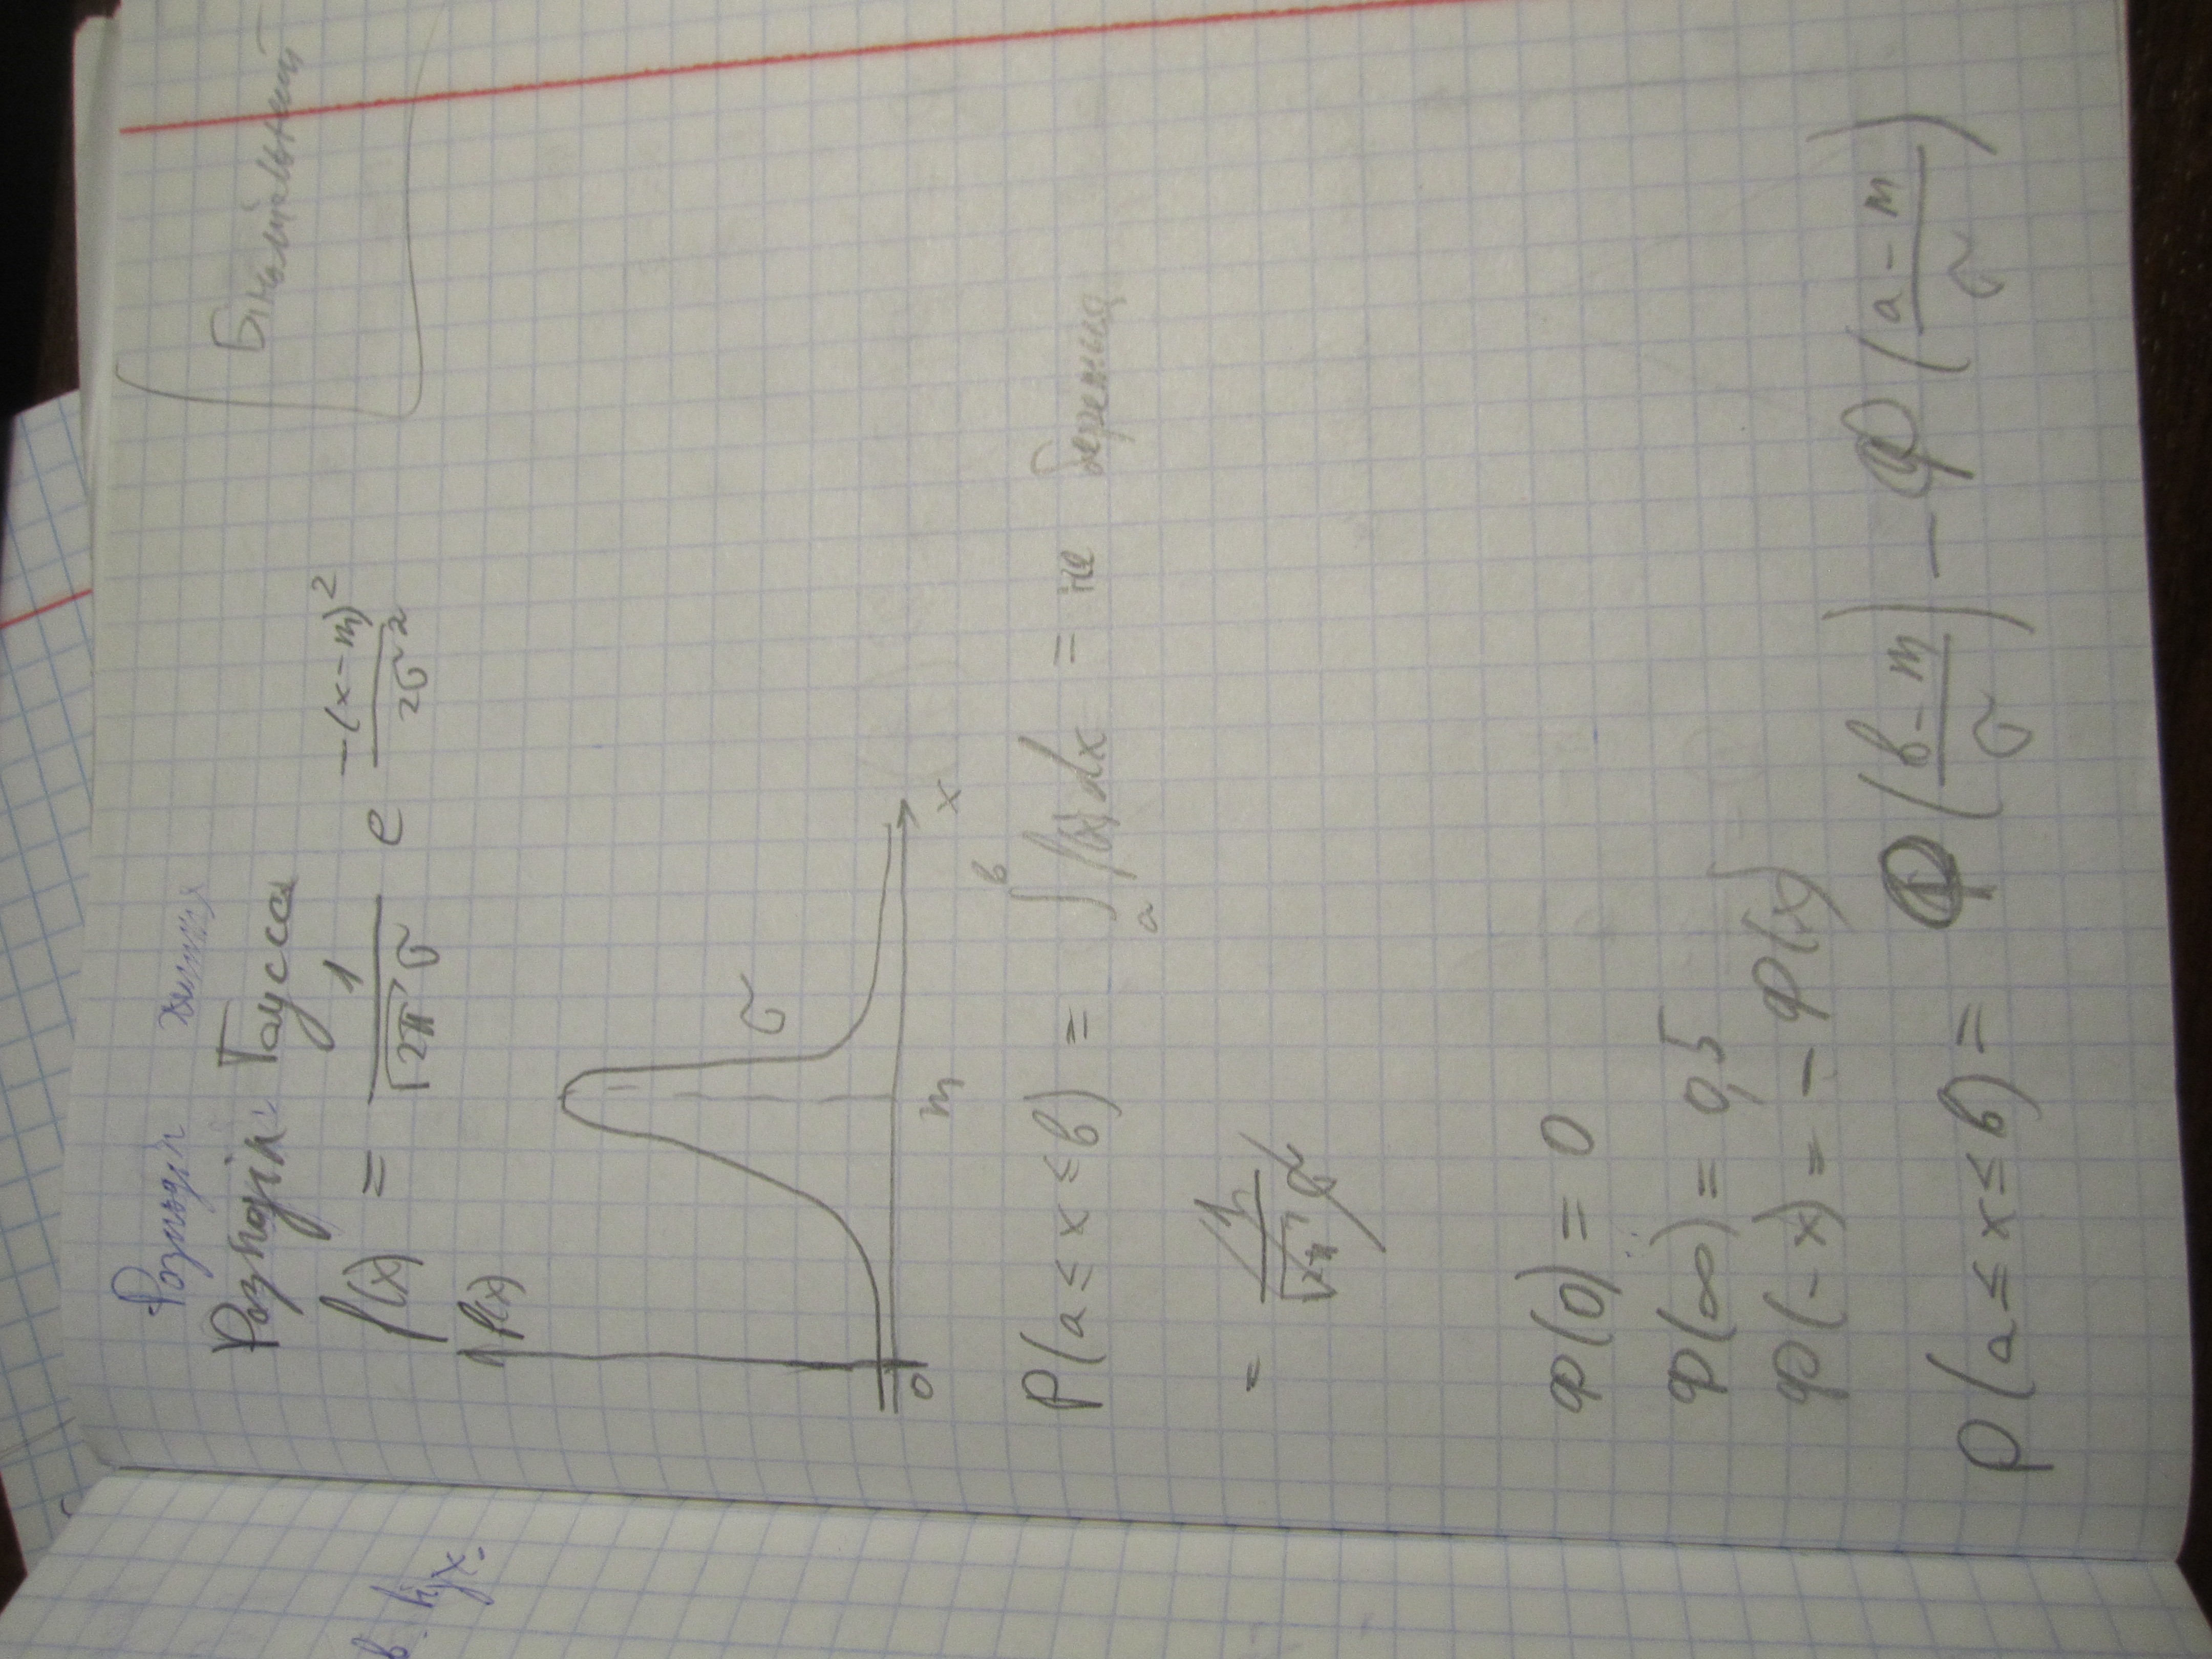 Розподіл життя
Розподіл Гаусса
Біноміальний
f(x) = 1/(√2π σ) e -(x-m)²/2σ²
f(x)
σ
0 m x
P(a ≤ x ≤ b) = ∫ₐᵇ f(x)dx = не береться
= 1/(√2π σ)
Ф(0) = 0
Ф(∞) = 0,5
Ф(-x) = - Ф(x)
P(a ≤ x ≤ b) = Ф((b-m)/σ) - Ф((a-m)/σ)